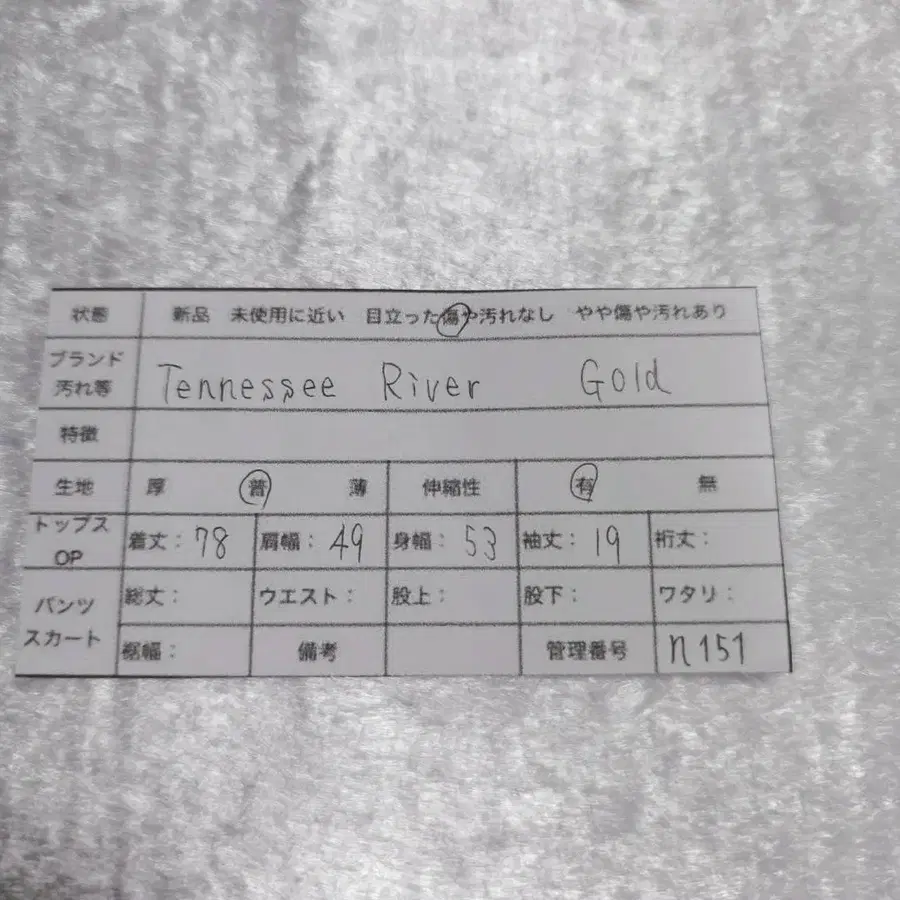 状態 新品 未使用に近い 目立った傷や汚れなし やや傷や汚れあり
ブランド
汚れ等 Tennessee River Gold
特徴
生地 厚 普 薄 伸縮性 有 無
トップス
OP 着丈: 78 肩幅: 49 身幅: 53 袖丈: 19 裄丈:
パンツ
スカート 総丈: ウエスト: 股上: 股下: ワタリ:
裾幅: 備考 管理番号 n151